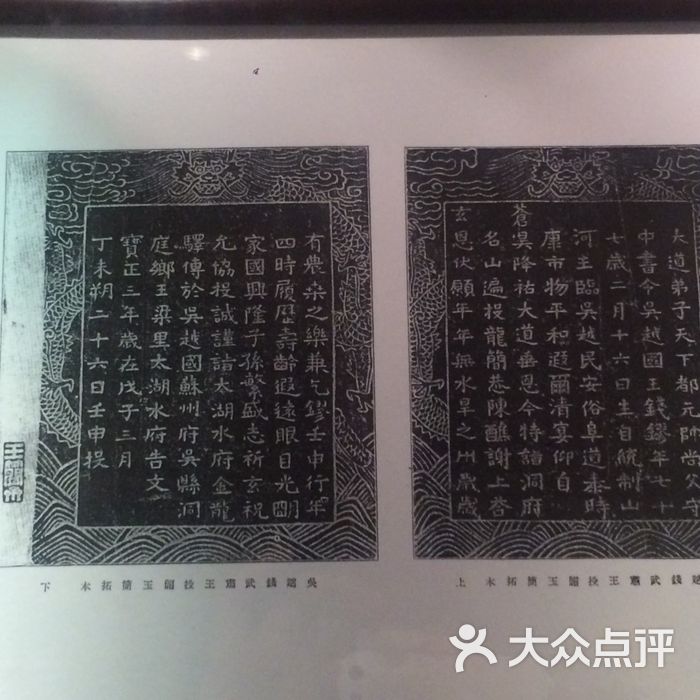 大道弟子天下都元帥尚父守
中書令吳越國王錢鏐年七十
七歲二月十六日生自統制山
河主臨吳越民安俗阜道泰時
康市物平和遐爾清宴仰自
蒼昊降祐大道垂恩今特詣洞府
名山遍投龍簡恭陳醮謝上答
玄恩伏願年年無水旱之州歲歲
越錢武肅王投龍玉簡拓本 上
有農桑之樂兼乞鏐壬申行年
四時履歷壽齡遐遠眼目光明
家國興隆子孫繁盛志祈玄祝
允協投誠謹詣太湖水府金龍
驛傳於吳越國蘇州府吳縣洞
庭鄉王梁里太湖水府告文
寶正三年歲在戊子三月
丁未朔二十六日壬申投
吳越錢武肅王投龍玉簡拓本 下
大众点评